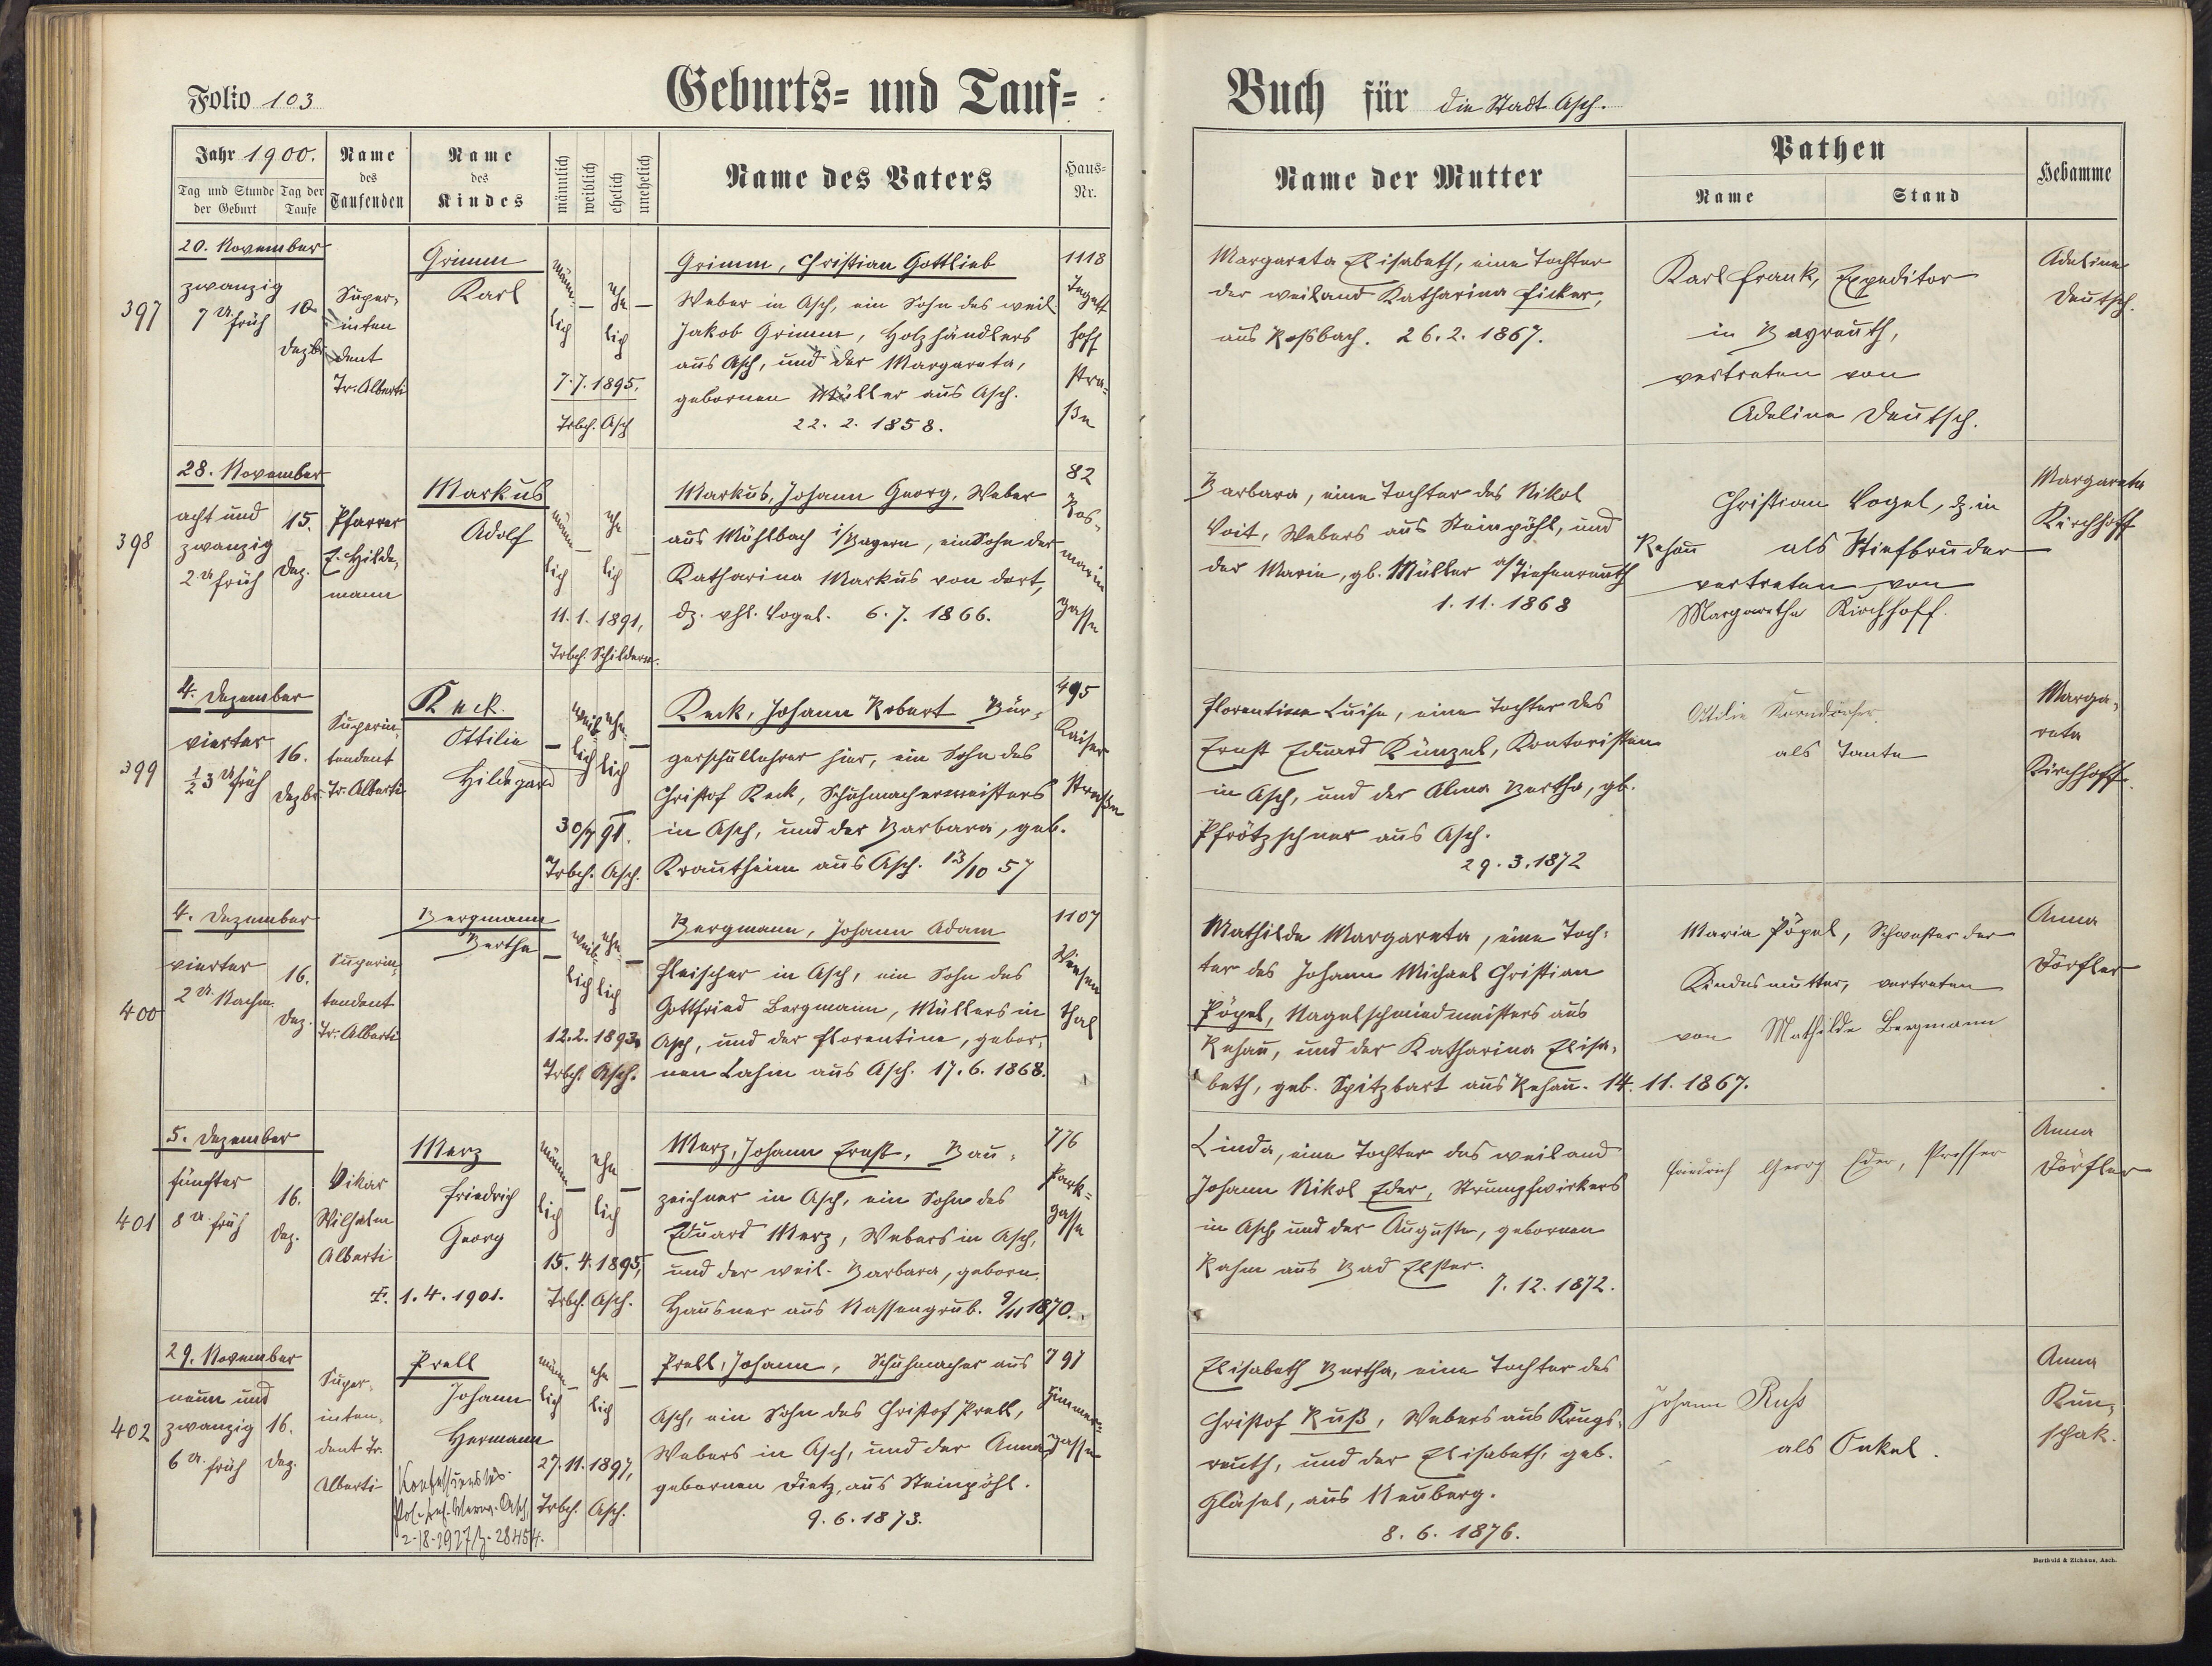 Folio 103
Geburts= und Tauf=
Jahr 1900.
Tag und Stunde der Geburt
Tag der Taufe
Name des Taufenden
Name des Kindes
männlich
weiblich
ehelich
unehelich
Name des Vaters
Haus-Nr.
Buch für die Stadt Asch.
Name der Mutter
Pathen
Name
Stand
Hebamme
397
20. November
zwanzig
7 U. früh
Dezbr
Super-
inten
dent
Tr. Alberti
Grimm
Karl
männ-
lich
ehe
lich
7.7.1895.
Trbch. Asch
Grimm, Christian Gottlieb
Weber in Asch, ein Sohn des weil
Jakob Grimm, Holzhändlers
aus Asch, und der Margareta,
gebornen Müller aus Asch.
22. 2. 1858.
1118
Tegett
hoff
stra-
ße
Margareta Elisabeth, eine Tochter
der weiland Katharina Ficker,
aus Roßbach. 26.2.1867.
Karl Frank, Expeditor
in Bayreuth,
vertreten von
Adeline Deutsch.
Adeline
Deutsch.
398
28. November
acht und
zwanzig
2 U. früh
15.
Dez.
Pfarrer
E. Hilde-
mann
Markus
Adolf
männ
lich
ehe
lich
11.1.1891,
Trbch. Schildern.
Markus, Johann Georg, Weber
aus Mühlbach i/Bayern, ein Sohn der
Katharina Markus von dort,
dz. vhl. Vogel. 6.7.1866.
82
Ros-
marin
gasse
Barbara, eine Tochter des Nikol
Voit, Webers aus Steinpöhl, und
der Marie, gb. Müller a/Tiefenreuth
1.11.1868
Christian Vogel, dz. in
Rehau als Stiefbruder
vertreten von
Margaretha Kirchhoff.
Margareta
Kirchhoff
399
4. Dezember
vierter
½3 U früh
16.
Dezbr
Superin-
tendent
Tr. Alberti
Keck
Ottilie
Hildegard
weib-
lich
ehe-
lich
30/7 91.
Trbch. Asch.
Keck, Johann Robert Bür-
gerschullehrer hier, ein Sohn des
Christof Keck, Schuhmachermeisters
in Asch, und der Barbara, geb.
Krautheim aus Asch. 13/10 57
495
Kaiser
Straße
Florentine Luise, eine Tochter des
Ernst Eduard Künzel, Kontoristen
in Asch, und der Alma Bertha, gb.
Pfrötzschner aus Asch.
29.3.1872
Ottilie Korndörfer
als Tante
Marga-
reta
Kirchhoff.
400
4. Dezember
vierter
2 U. Nachm.
16.
Dez.
Superin-
tendent
Tr. Alberti
Bergmann
Bertha
weib-
lich
ehe-
lich
12.2.1893.
Trbch. Asch.
Bergmann, Johann Adam
Fleischer in Asch, ein Sohn des
Gottfried Bergmann, Müllers in
Asch, und der Florentine, gebor-
nen Lahm aus Asch. 17.6.1868.
1107
Wiesen
thal
Mathilde Margareta, eine Toch-
ter des Johann Michael Christian
Pöpel, Nagelschmiedmeisters aus
Rehau, und der Katharina Elisa-
beth, geb. Spitzbart aus Rehau. 14.11.1867.
Maria Pöpel, Schwester der
Kindesmutter, vertreten
von Mathilde Bergmann
Anna
Dörfler
401
5. Dezember
fünfter
8 U. früh
16.
Dez.
Vikar
Wilhelm
Alberti
Merz
Friedrich
Georg
1.4.1901.
männ
lich
ehe
lich
15.4.1895,
Trbch. Asch.
Merz, Johann Ernst, Bau-
zeichner in Asch, ein Sohn des
Eduard Merz, Webers in Asch,
und der weil. Barbara, geborn.
Hausner aus Nassengrub. 9/11 1870.
776
Park-
gasse
Linda, eine Tochter des weiland
Johann Nikol Eder, Strumpfwirkers
in Asch und der Auguste, gebornen
Rahm aus Bad Elster.
7.12.1872.
Friedrich Georg Eder, Presser
Anna
Dörfler
402
29. November
neun und
zwanzig
6 U. früh
16.
Dez.
Super-
inten-
dent Tr.
Alberti
Prell
Johann
Hermann
Konfessionslos
2-18-1927/z. 28454.
männ-
lich
ehe
lich
27.11.1897,
Trbch. Asch.
Prell, Johann, Schuhmacher aus
Asch, ein Sohn des Christof Prell,
Webers in Asch, und der Anna,
gebornen Dietz, aus Steinpöhl.
9.6.1873.
791
Zimmer-
gasse
Elisabeth Bertha, eine Tochter des
Christof Ruß, Webers aus Krugs-
reuth, und der Elisabeth, geb.
Gläsel, aus Neuberg.
8.6.1876.
Johann Russ
als Onkel.
Anna
Kun-
schak.
Berthold & Zichäus, Asch.